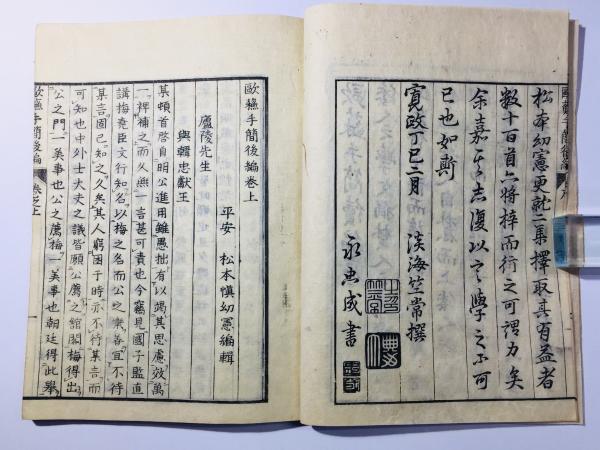 松本幼憲更就二集擇取其有益者
數十百首亦將梓而行之可謂力矣
余嘉其志復以言學之不可
已也如斯
寛政丁巳二月
淡海竺常撰
永忠成書
歐蘓手簡後編巻上
平安 松本愼幼憲編輯
廬陵先生
與韓忠獻王
某頓首啓自明公進用雖愚拙有以竭其思慮效萬
一裨補之而久無一言甚可責也今竊見國子監直
講梅堯臣文行知名以梅之名而公之樂善宜不待
某言固已知之久矣其人窮困于時亦不待某言而
可知也中外士大夫之議皆願公薦之館閣梅得出
公之門一美事也公之薦梅一美事也朝廷得此舉
歐蘓手簡後編 巻之上